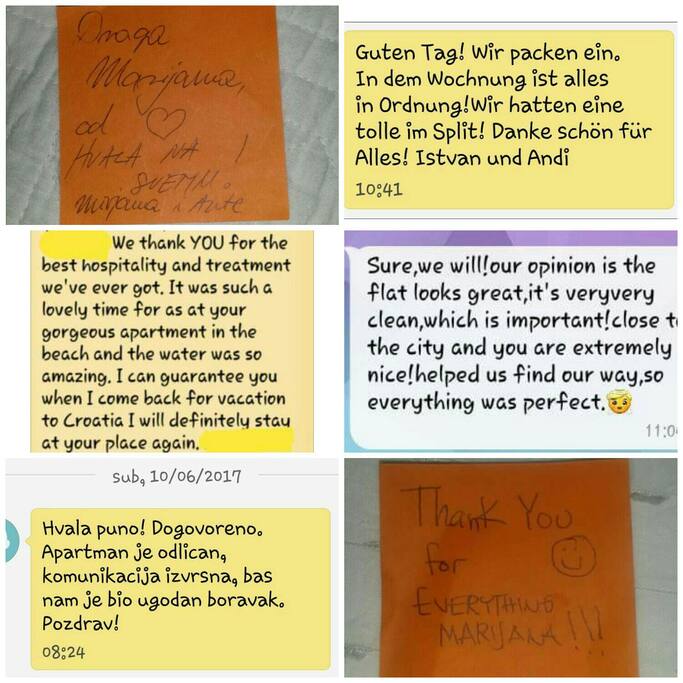 Draga
Marijana,
od ♡
HVALA NA
SVEMU!
Mirjana i Ante
Guten Tag! Wir packen ein.
In dem Wochnung ist alles
in Ordnung!Wir hatten eine
tolle im Split! Danke schön für
Alles! Istvan und Andi
10:41
We thank YOU for the
best hospitality and treatment
we've ever got. It was such a
lovely time for as at your
gorgeous apartment in the
beach and the water was so
amazing. I can guarantee you
when I come back for vacation
to Croatia I will definitely stay
at your place again.
Sure,we will!our opinion is the
flat looks great,it's veryvery
clean,which is important!close t
the city and you are extremely
nice!helped us find our way,so
everything was perfect.😇
11:0
sub, 10/06/2017
Hvala puno! Dogovoreno.
Apartman je odlican,
komunikacija izvrsna, bas
nam je bio ugodan boravak.
Pozdrav!
08:24
Thank You
for ☺
EVERYTHING
MARIJANA!!!